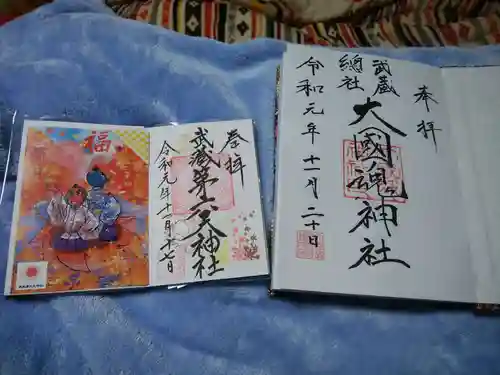 奉拝
武蔵
總社
大國魂神社
令和元年十一月二十日
奉拝
武蔵第六天神社
令和元年十一月十七日
福